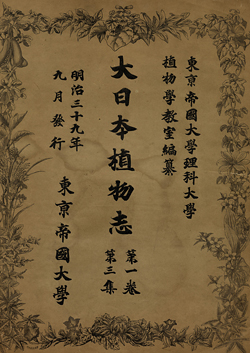 東京帝國大學理科大學
植物學教室編纂
大日本植物志
第一卷
第三集
明治三十九年
九月發行
東京帝國大學